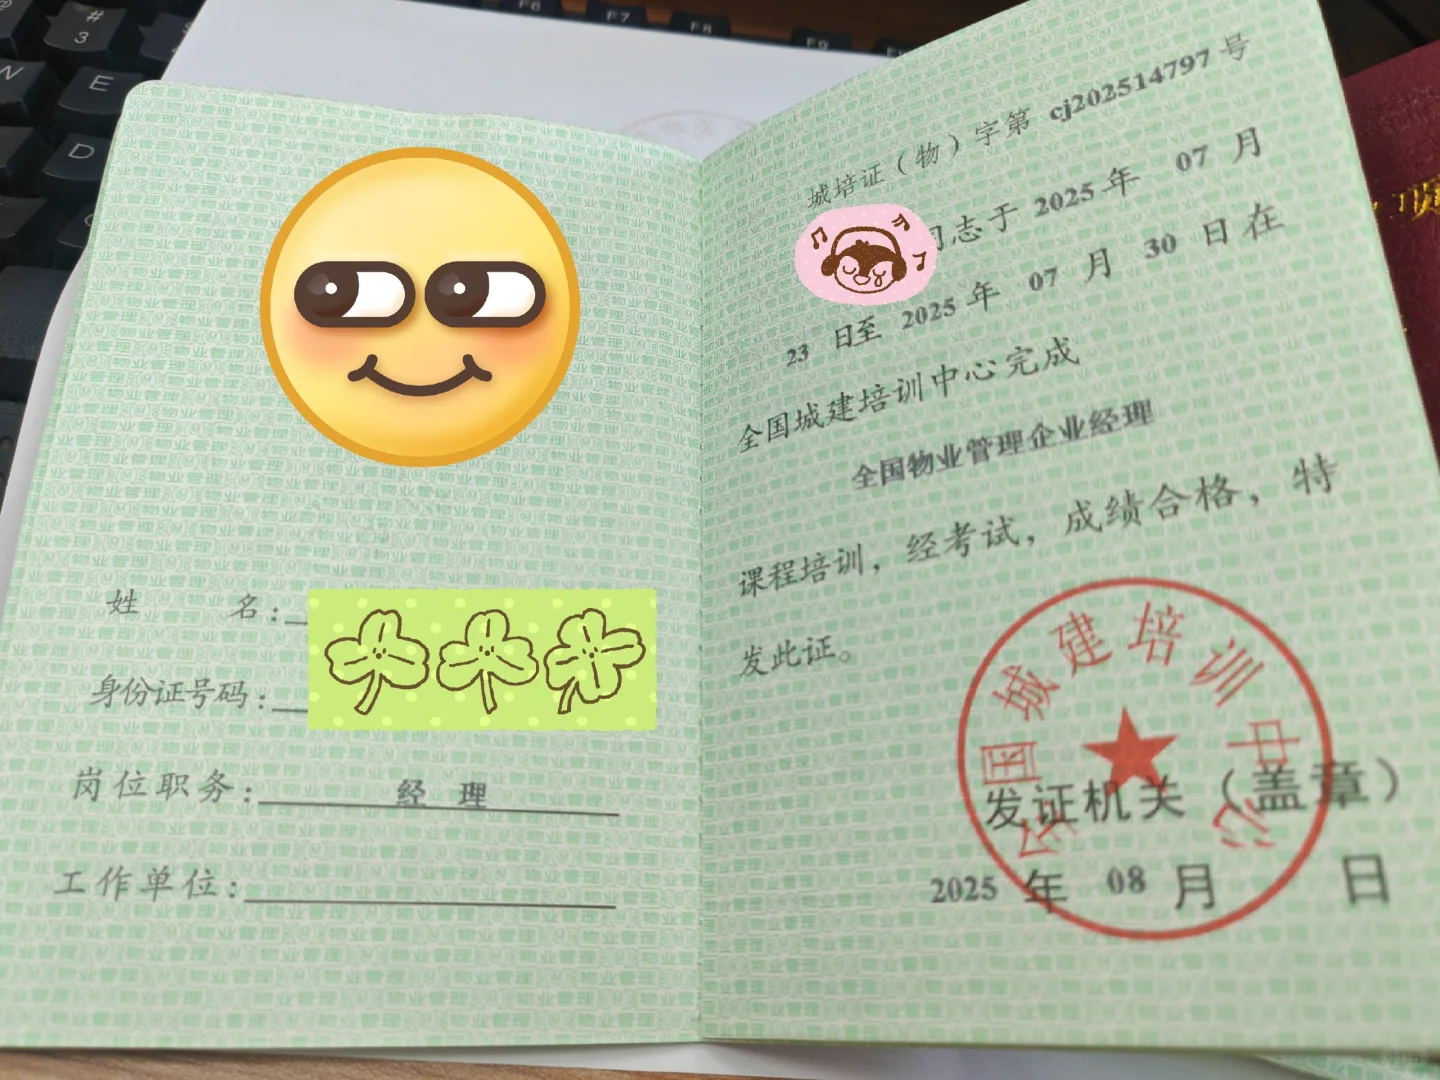 姓名：
身份证号码：
岗位职务：经理
工作单位：
城培证（物）字第 cj202514797 号
同志于 2025 年 07 月
23 日至 2025 年 07 月 30 日在
全国城建培训中心完成
全国物业管理企业经理
课程培训，经考试，成绩合格，特
发此证。
全国城建培训中心
发证机关（盖章）
2025 年 08 月 日
# 3
E
D
F6
F7
F8
F9